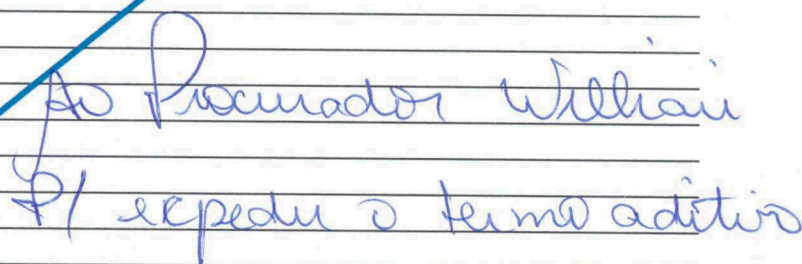 Ao Procurador Willian
P/ expedir o termo aditivo